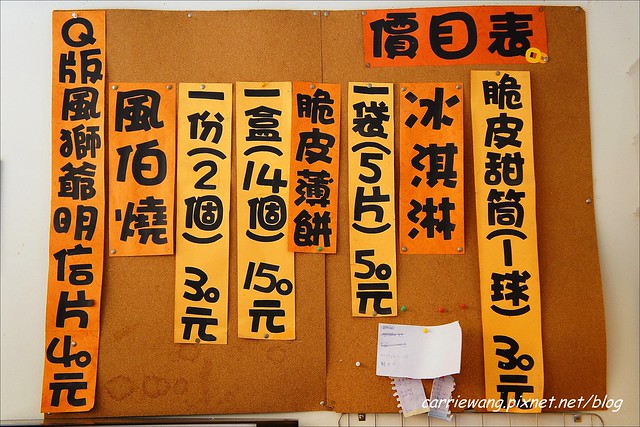 價目表
脆皮甜筒(一球) 30元
冰淇淋
一袋(5片) 50元
脆皮薄餅
一盒(14個) 150元
一份(2個) 30元
風伯燒
Q版風獅爺明信片40元
carriewang.pixnet.net/blog